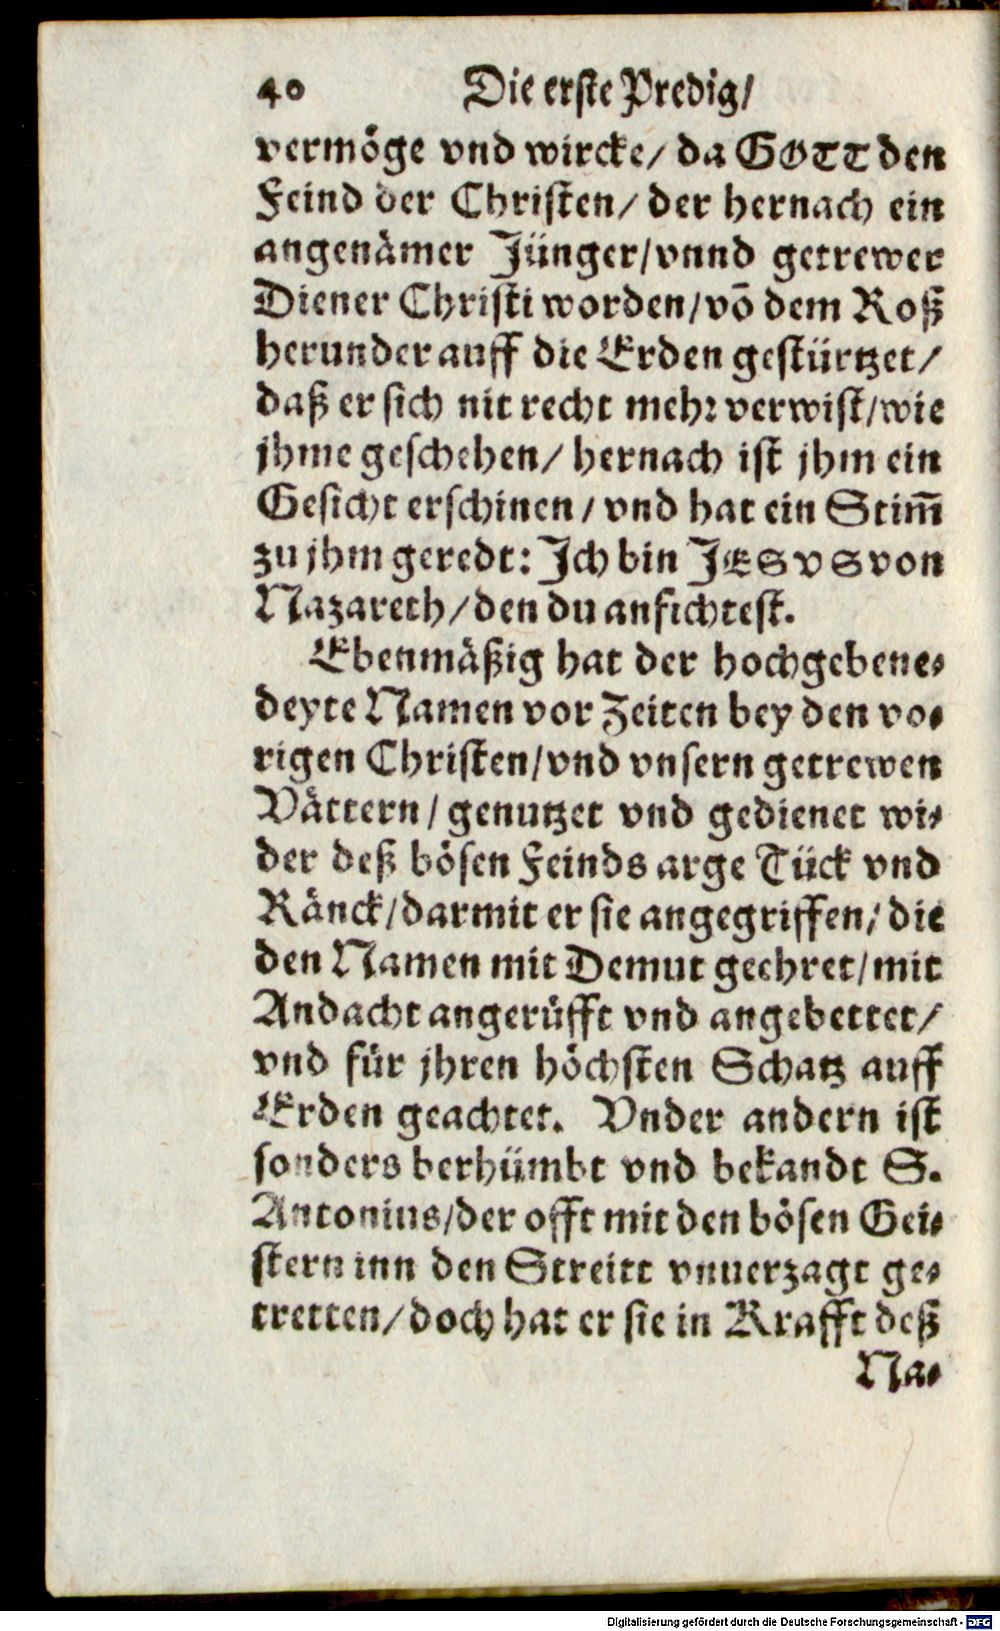 40 Die erste Predig/
vermöge vnd wircke/ da GOTT den
Feind der Christen/ der hernach ein
angenämer Jünger/vnnd getrewer
Diener Christi worden/võ dem Roß
herunder auff die Erden gestürtzet/
daß er sich nit recht mehr verwist/wie
jhme geschehen/ hernach ist jhm ein
Gesicht erschinen/ vnd hat ein Stim̄
zu jhm geredt: Ich bin JESVS von
Nazareth/den du anfichtest.
Ebenmäßig hat der hochgebene⸗
deyte Namen vor Zeiten bey den vo⸗
rigen Christen/vnd vnsern getrewen
Vättern/ genutzet vnd gedienet wi⸗
der deß bösen Feinds arge Tück vnd
Ränck/darmit er sie angegriffen/ die
den Namen mit Demut geehret/mit
Andacht angerüfft vnd angebettet/
vnd für jhren höchsten Schatz auff
Erden geachtet. Vnder andern ist
sonders berhümbt vnd bekandt S.
Antonius/der offt mit den bösen Gei⸗
stern inn den Streitt vnuerzagt ge⸗
tretten/doch hat er sie in Krafft deß
Na⸗
Digitalisierung gefördert durch die Deutsche Forschungsgemeinschaft - DFG